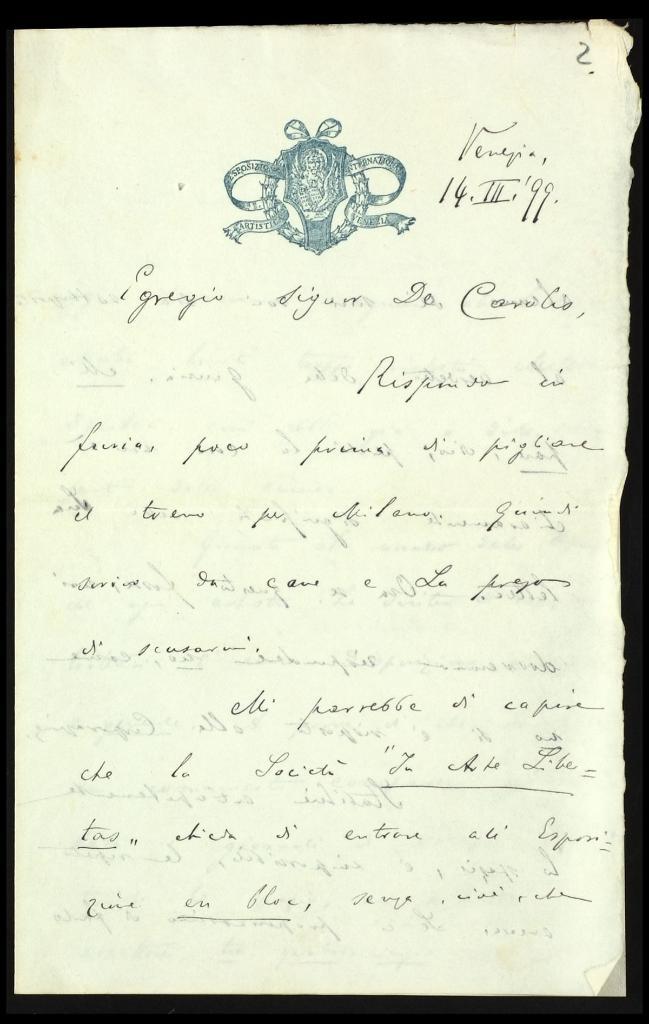 2
ESPOSIZIONE INTERNAZIONALE
ARTISTICA VENEZIA
Venezia,
14. III. '99.
Egregio Signor De Carolis,
Rispondo in
furia, poco prima di pigliare
il treno per Milano. Quindi
scrivo da cane e La prego
di scusarmi.
Mi parrebbe di capire
che la Società "In Arte Liber=
tas„ chieda di entrare all'Esposi=
zione en bloc, senza, cioè, che